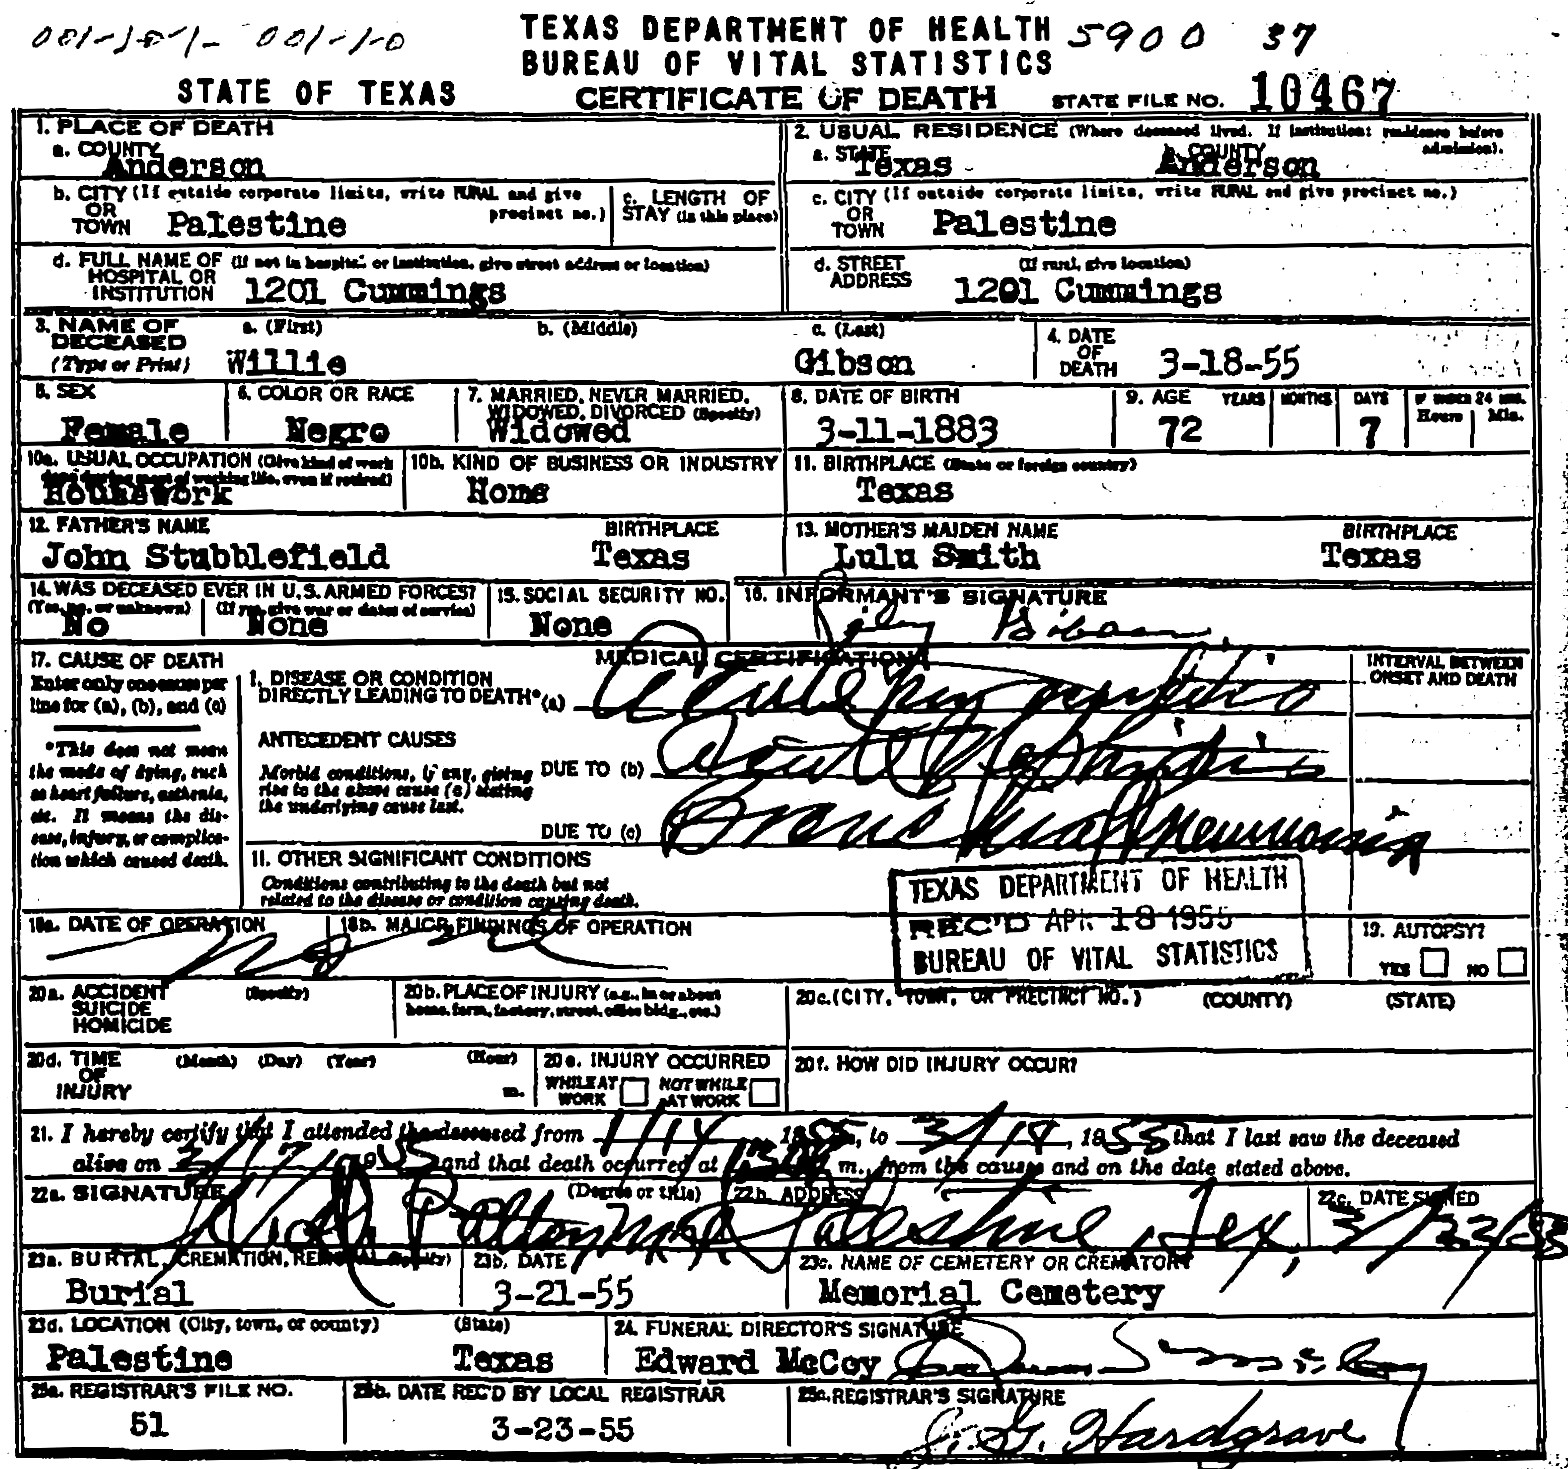 TEXAS DEPARTMENT OF HEALTH 5900 37
BUREAU OF VITAL STATISTICS
STATE OF TEXAS CERTIFICATE OF DEATH STATE FILE NO. 10467
1. PLACE OF DEATH
a. COUNTY Anderson
2. USUAL RESIDENCE (Where deceased lived. If institution: residence before admission).
a. STATE Texas b. COUNTY Anderson
b. CITY (If outside corporate limits, write RURAL and give precinct no.)
OR TOWN Palestine
c. LENGTH OF STAY (in this place)
c. CITY (If outside corporate limits, write RURAL and give precinct no.)
OR TOWN Palestine
d. FULL NAME OF (If not in hospital or institution, give street address or location)
HOSPITAL OR INSTITUTION 1201 Cummings
d. STREET ADDRESS (If rural, give location)
1201 Cummings
3. NAME OF DECEASED (Type or Print)
a. (First) Willie
b. (Middle)
c. (Last) Gibson
4. DATE OF DEATH 3-18-55
5. SEX Female
6. COLOR OR RACE Negro
7. MARRIED, NEVER MARRIED, WIDOWED, DIVORCED (Specify) Widowed
8. DATE OF BIRTH 3-11-1883
9. AGE YEARS 72 MONTHS DAYS 7 IF UNDER 24 HRS. Hours Min.
10a. USUAL OCCUPATION (Give kind of work done during most of working life, even if retired) Housework
10b. KIND OF BUSINESS OR INDUSTRY Home
11. BIRTHPLACE (State or foreign country) Texas
12. FATHER'S NAME John Stubblefield BIRTHPLACE Texas
13. MOTHER'S MAIDEN NAME Lulu Smith BIRTHPLACE Texas
14. WAS DECEASED EVER IN U.S. ARMED FORCES?
(Yes, no, or unknown) No (If yes, give war or dates of service) None
15. SOCIAL SECURITY NO. None
16. INFORMANT'S SIGNATURE
Gibson
MEDICAL CERTIFICATION
17. CAUSE OF DEATH
Enter only one cause per line for (a), (b), and (c)
*This does not mean the mode of dying, such as heart failure, asthenia, etc. It means the disease, injury, or complication which caused death.
I. DISEASE OR CONDITION DIRECTLY LEADING TO DEATH* (a) Acute
INTERVAL BETWEEN ONSET AND DEATH
ANTECEDENT CAUSES
Morbid conditions, if any, giving rise to the above cause (a) stating the underlying cause last.
DUE TO (b) Acute Nephritis
DUE TO (c) Bronchial Pneumonia
II. OTHER SIGNIFICANT CONDITIONS
Conditions contributing to the death but not related to the disease or condition causing death.
TEXAS DEPARTMENT OF HEALTH
REC'D APR 18 1955
BUREAU OF VITAL STATISTICS
18a. DATE OF OPERATION
18b. MAJOR FINDINGS OF OPERATION
19. AUTOPSY?
YES NO
20a. ACCIDENT SUICIDE HOMICIDE (Specify)
20b. PLACE OF INJURY (e.g., in or about home, farm, factory, street, office bldg., etc.)
20c. (CITY, TOWN, OR PRECINCT NO.) (COUNTY) (STATE)
20d. TIME OF INJURY (Month) (Day) (Year) (Hour) m.
20e. INJURY OCCURRED
WHILE AT WORK NOT WHILE AT WORK
20f. HOW DID INJURY OCCUR?
21. I hereby certify that I attended the deceased from 1/14, 1955, to 3/18, 1955 that I last saw the deceased
alive on 3/17, 1955 and that death occurred at m., from the causes and on the date stated above.
22a. SIGNATURE (Degree or title)
22b. ADDRESS Palestine, Tex,
22c. DATE SIGNED 3/22/55
23a. BURIAL, CREMATION, REMOVAL (Specify) Burial
23b. DATE 3-21-55
23c. NAME OF CEMETERY OR CREMATORY Memorial Cemetery
23d. LOCATION (City, town, or county) (State)
Palestine Texas
24. FUNERAL DIRECTOR'S SIGNATURE
Edward McCoy
25a. REGISTRAR'S FILE NO. 51
25b. DATE REC'D BY LOCAL REGISTRAR 3-23-55
25c. REGISTRAR'S SIGNATURE
J. G. Hardgrave